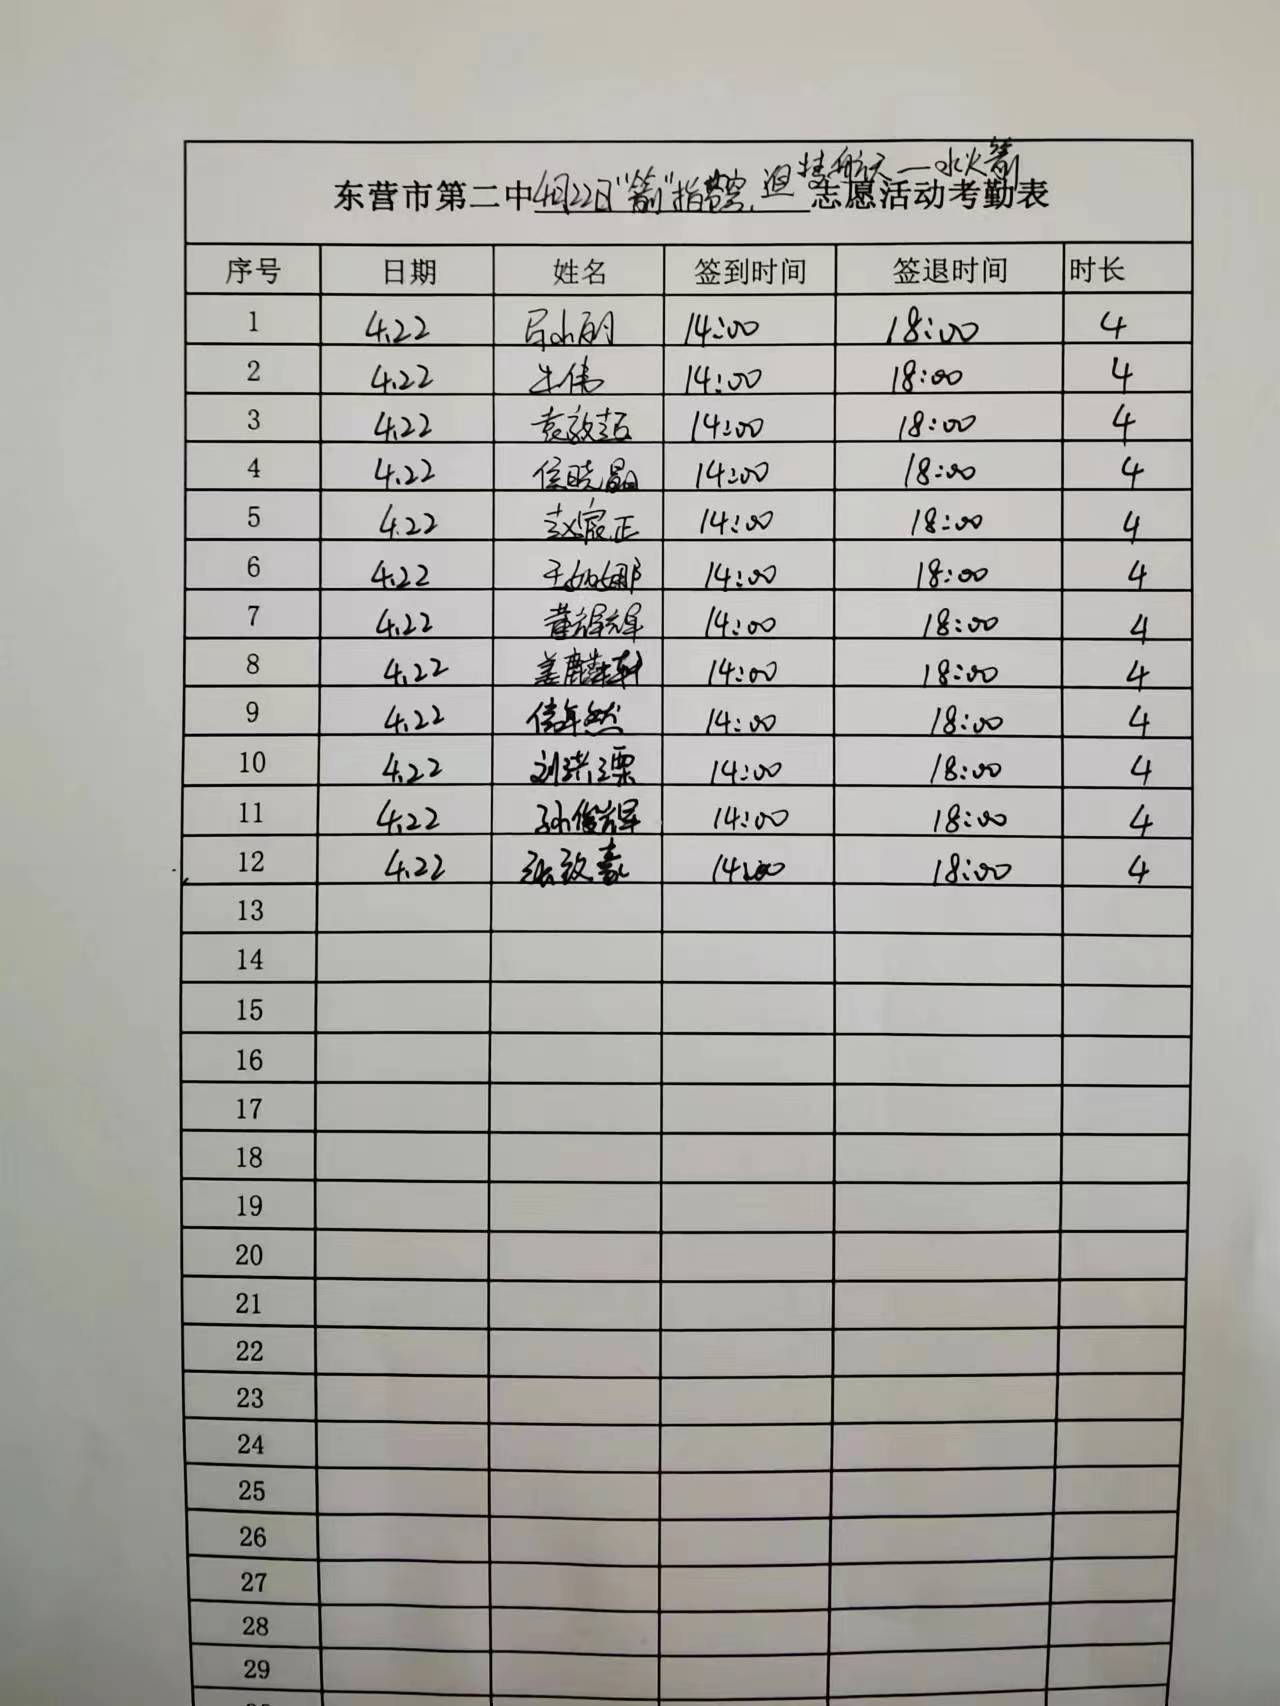 东营市第二中4月22日"箭"指苍穹,迎接航天—水火箭志愿活动考勤表
序号 日期 姓名 签到时间 签退时间 时长
1 4.22 14:00 18:00 4
2 4.22 牛伟 14:00 18:00 4
3 4.22 袁效喆 14:00 18:00 4
4 4.22 侯晓晶 14:00 18:00 4
5 4.22 赵宸正 14:00 18:00 4
6 4.22 王娜娜 14:00 18:00 4
7 4.22 黄辉辉 14:00 18:00 4
8 4.22 姜麟轩 14:00 18:00 4
9 4.22 14:00 18:00 4
10 4.22 14:00 18:00 4
11 4.22 孙俊辉 14:00 18:00 4
12 4.22 张效嘉 14:00 18:00 4
13
14
15
16
17
18
19
20
21
22
23
24
25
26
27
28
29